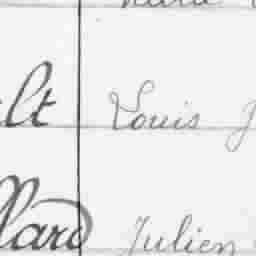 lt Louis J
llard Julien